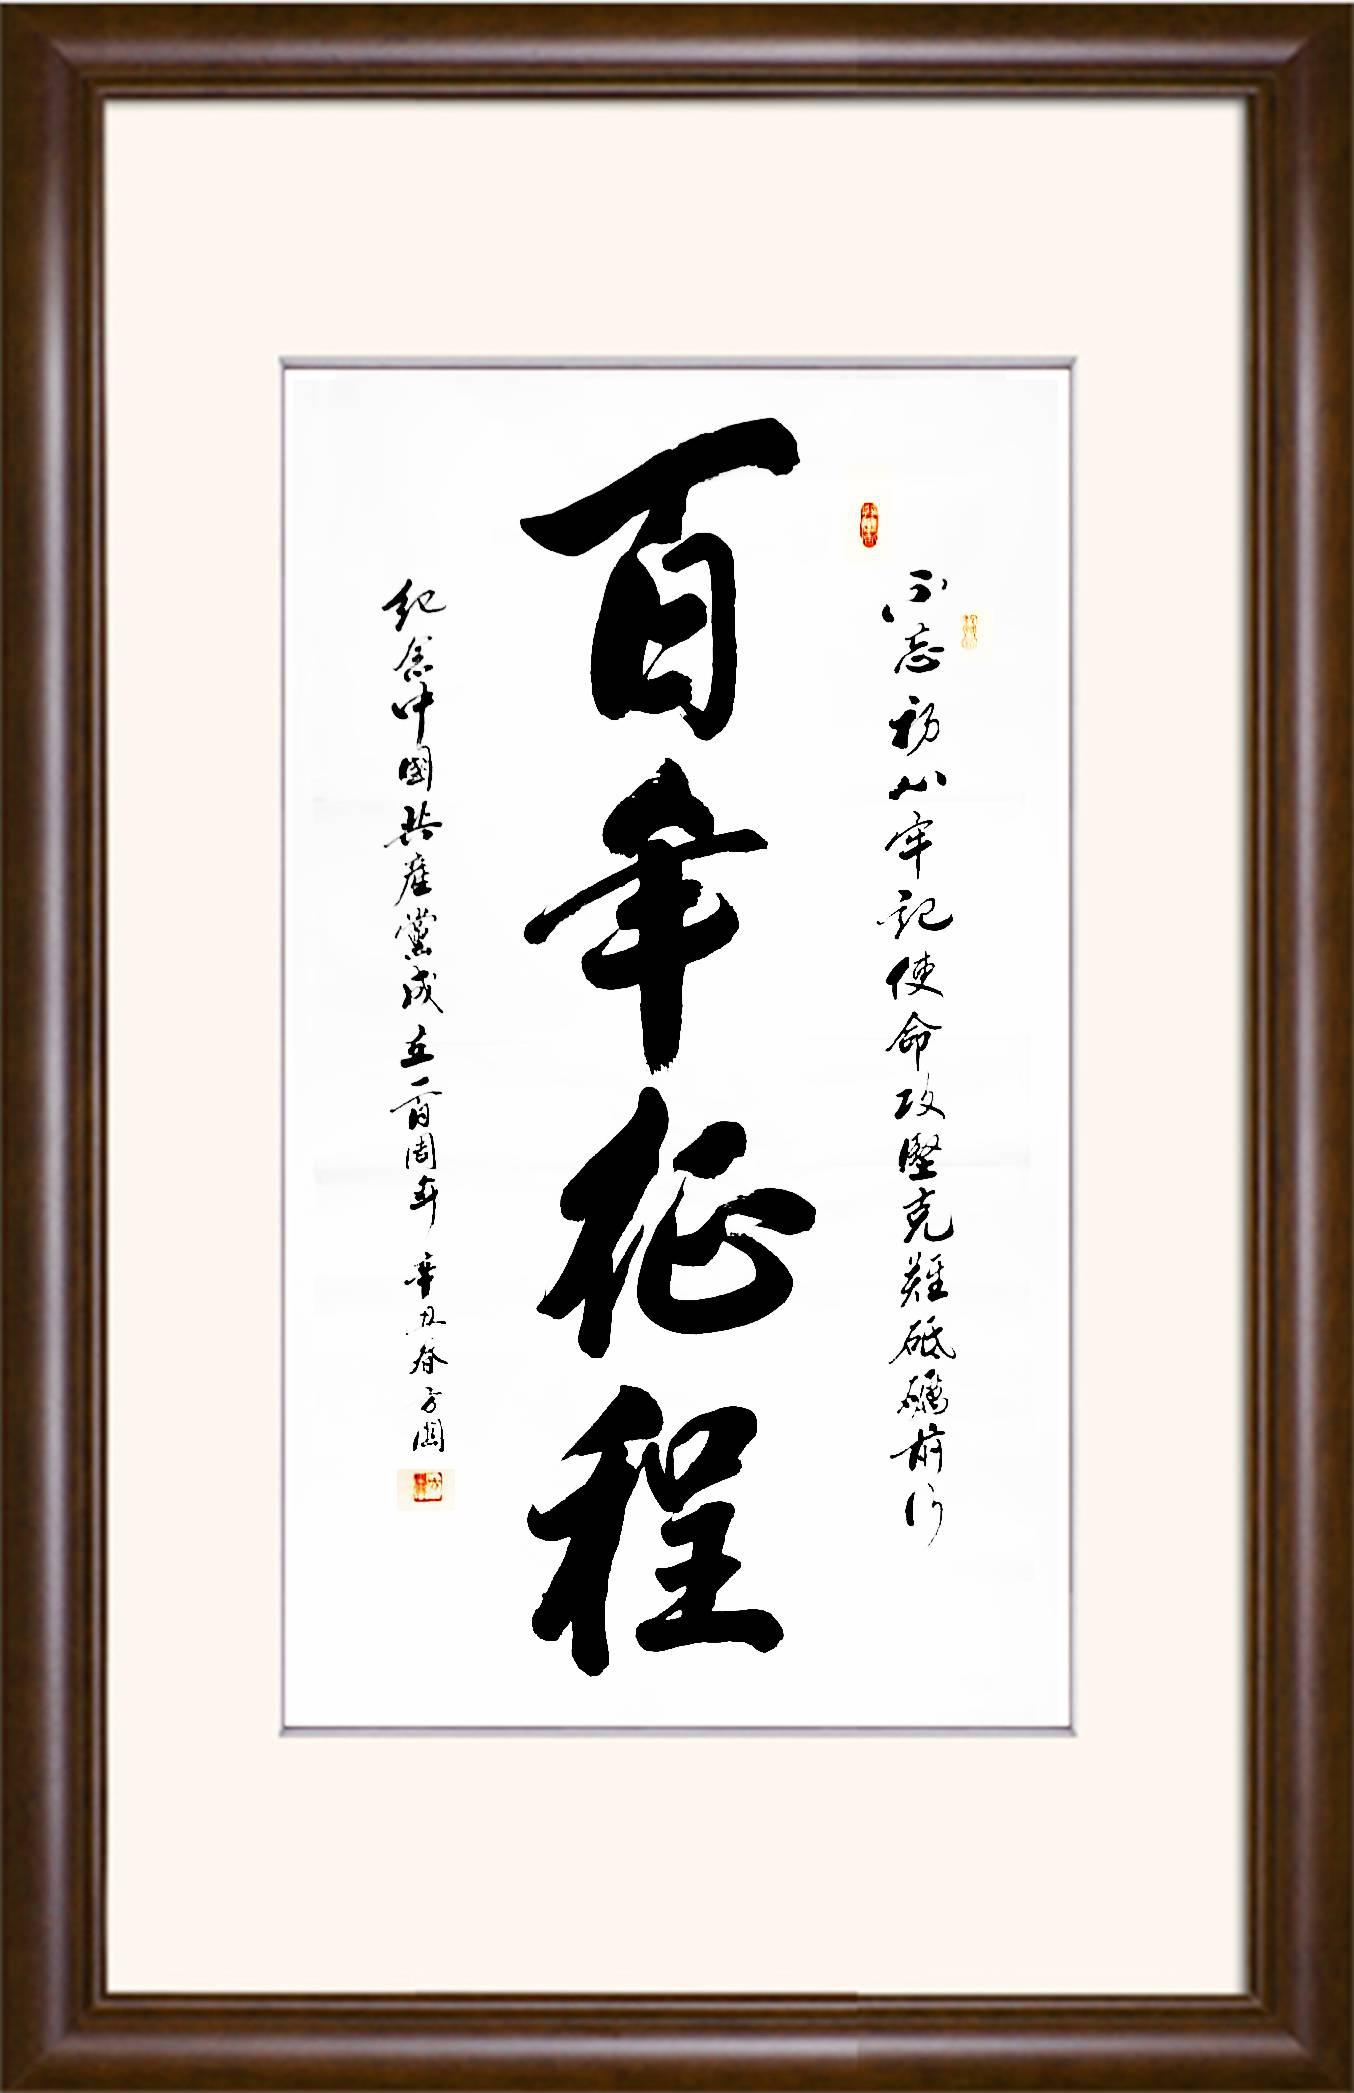 不忘初心牢记使命攻坚克难砥砺前行
百年征程
纪念中国共產黨成立一百周年 辛丑春方圆